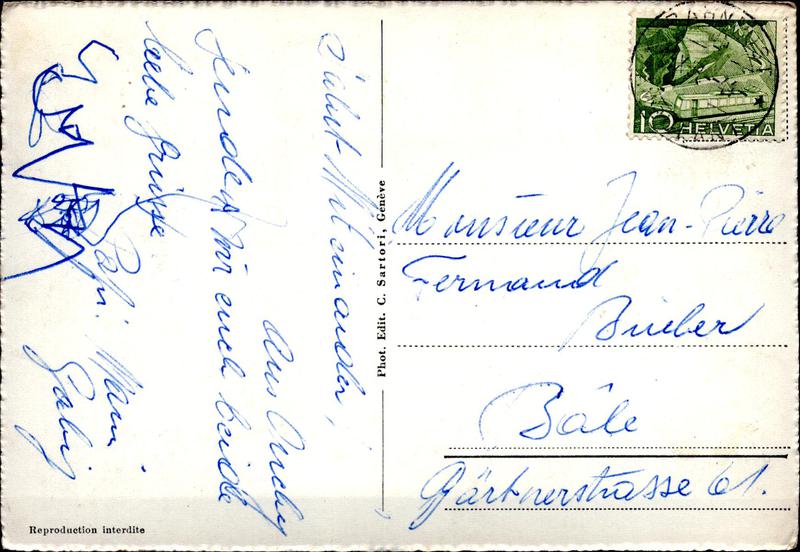 Salut Miteinander,
Aus Ouchy
senden wir euch beide
liebe Grüsse
Papi. Mami
Gaby
Phot. Edit. C. Sartori, Genève
Reproduction interdite
10 HELVETIA
Monsieur Jean-Pierre
Fernand
Bieber
Bâle
Gärtnerstrasse 61.